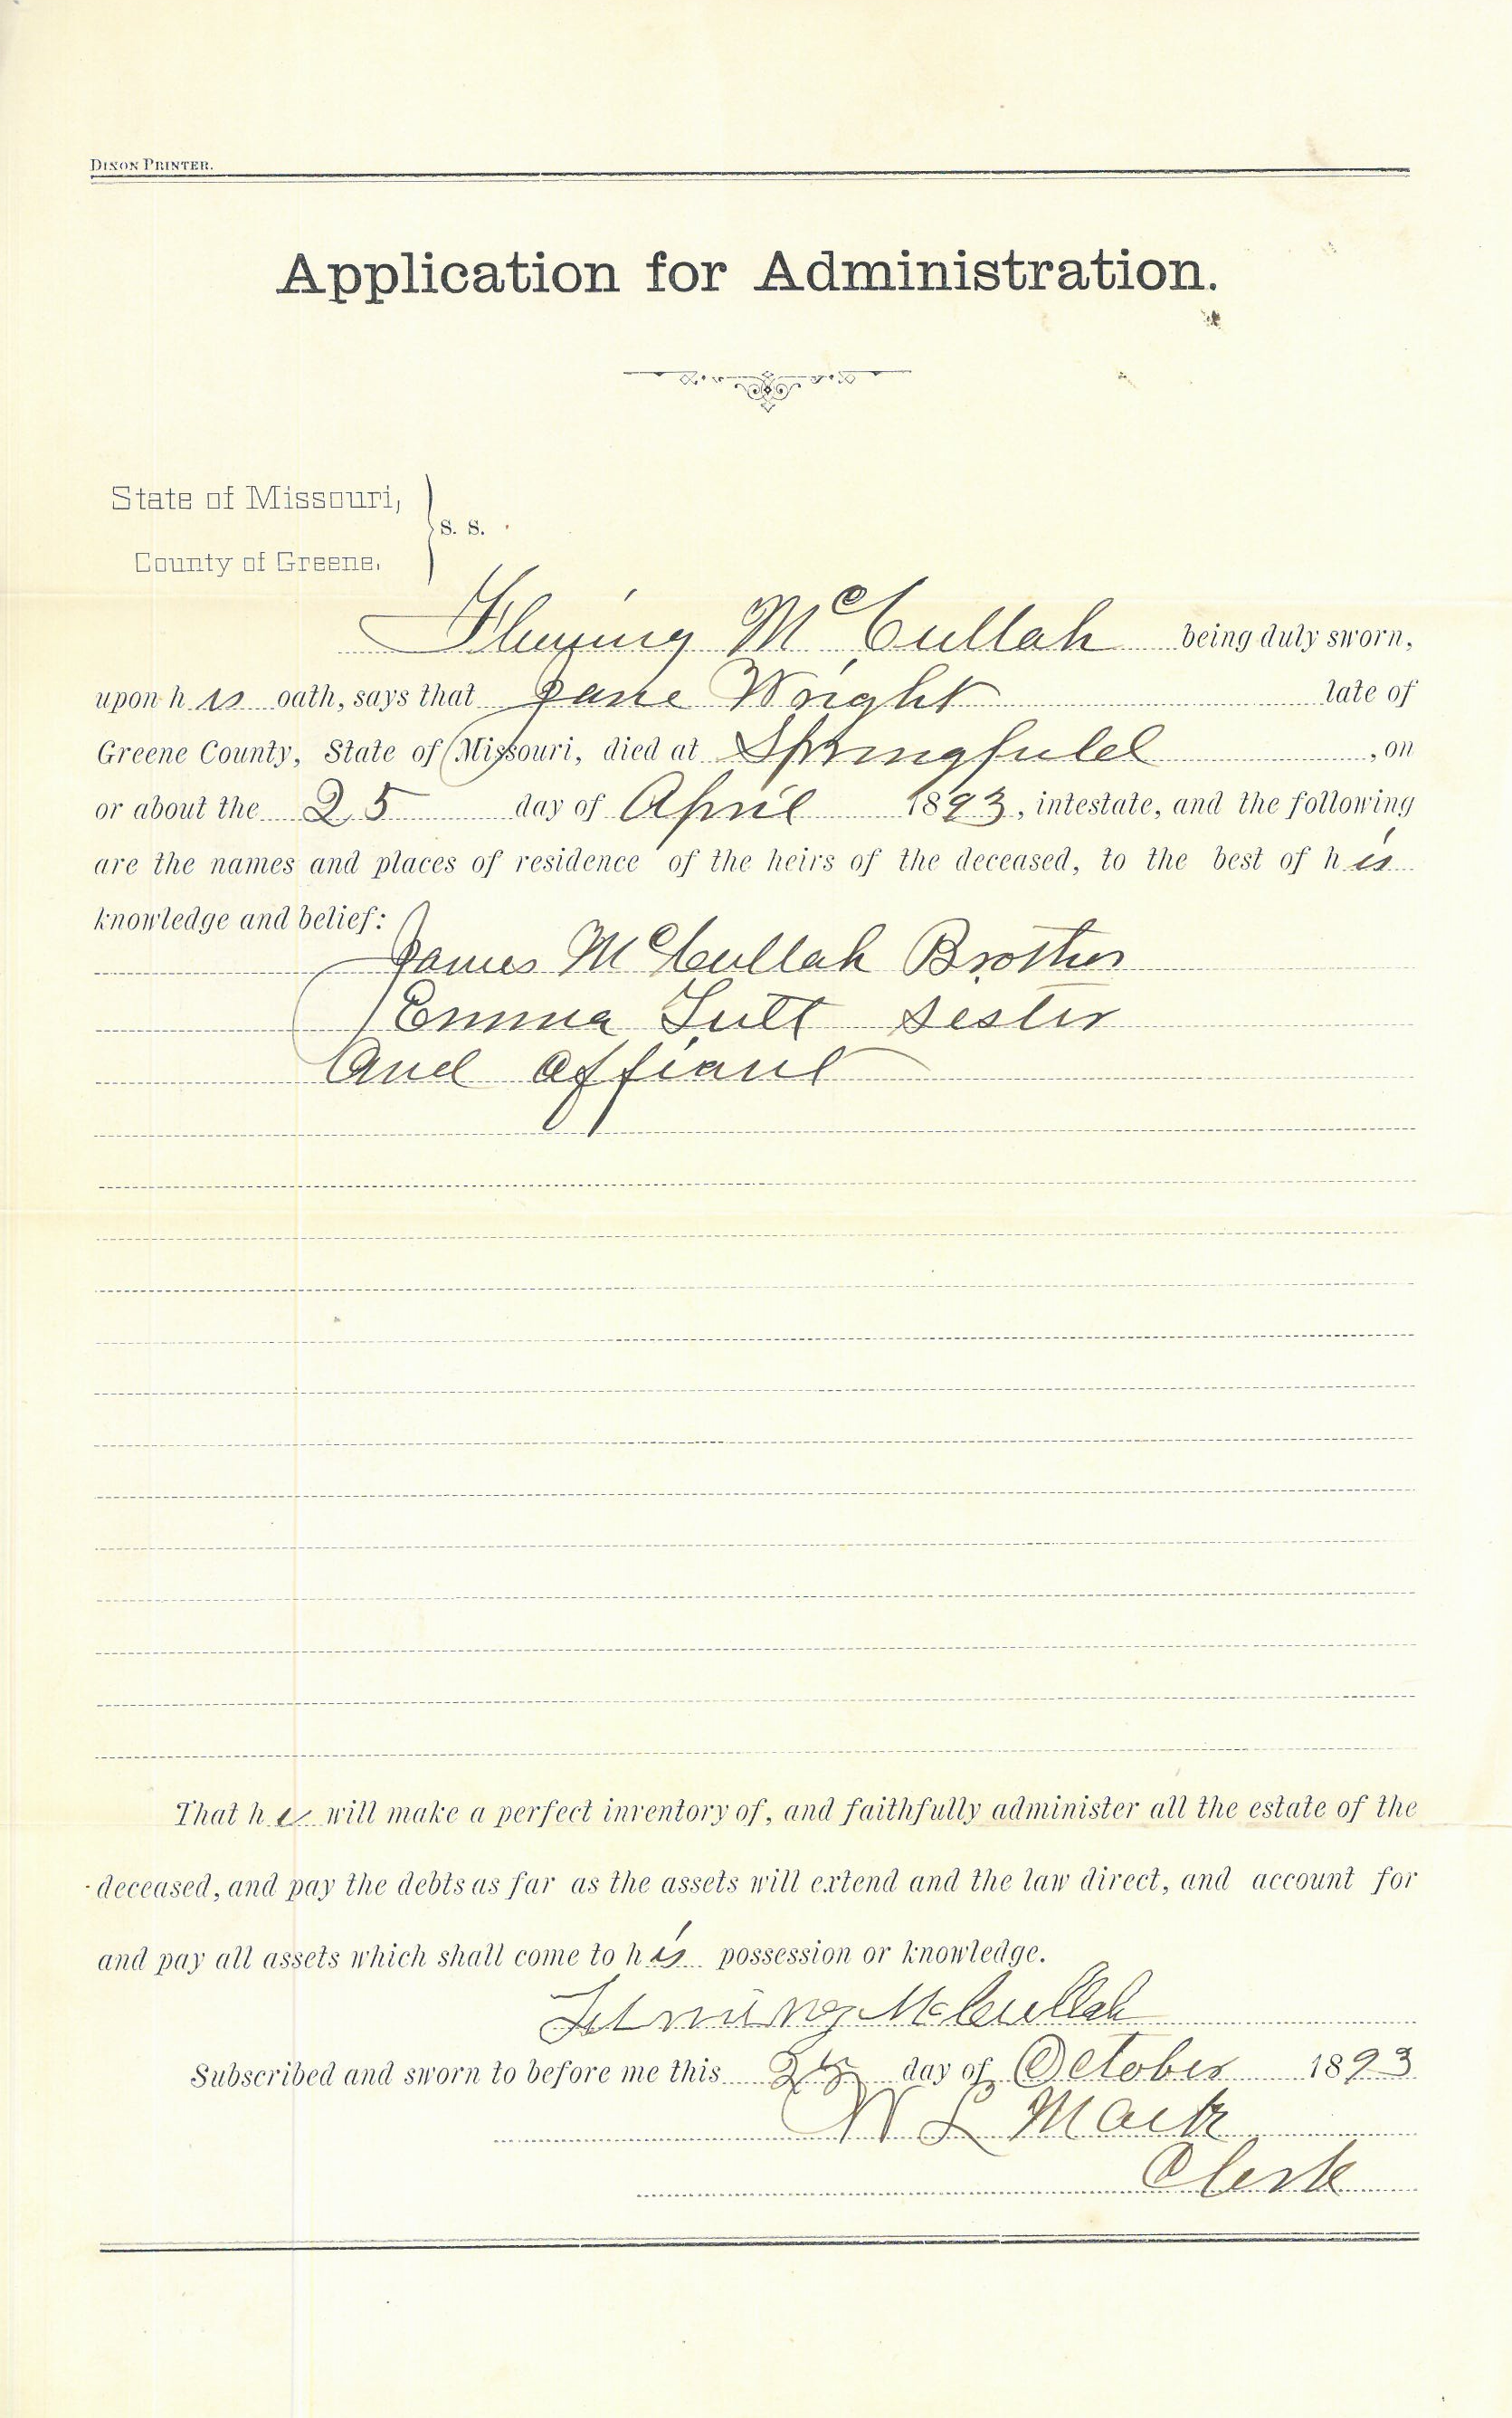 DIXON PRINTER.
Application for Administration.
State of Missouri,
S. S.
County of Greene.
Fleming McCullah being duly sworn,
upon his oath, says that Jane Wright late of
Greene County, State of Missouri, died at Springfield, on
or about the 25 day of April 1893, intestate, and the following
are the names and places of residence of the heirs of the deceased, to the best of his
knowledge and belief:
James McCullah Brother
Emma Tutt Sester
And affiant
That he will make a perfect inventory of, and faithfully administer all the estate of the
deceased, and pay the debts as far as the assets will extend and the law direct, and account for
and pay all assets which shall come to his possession or knowledge.
Fleming McCullah
Subscribed and sworn to before me this day of October 1893
W L Mack
Clerk